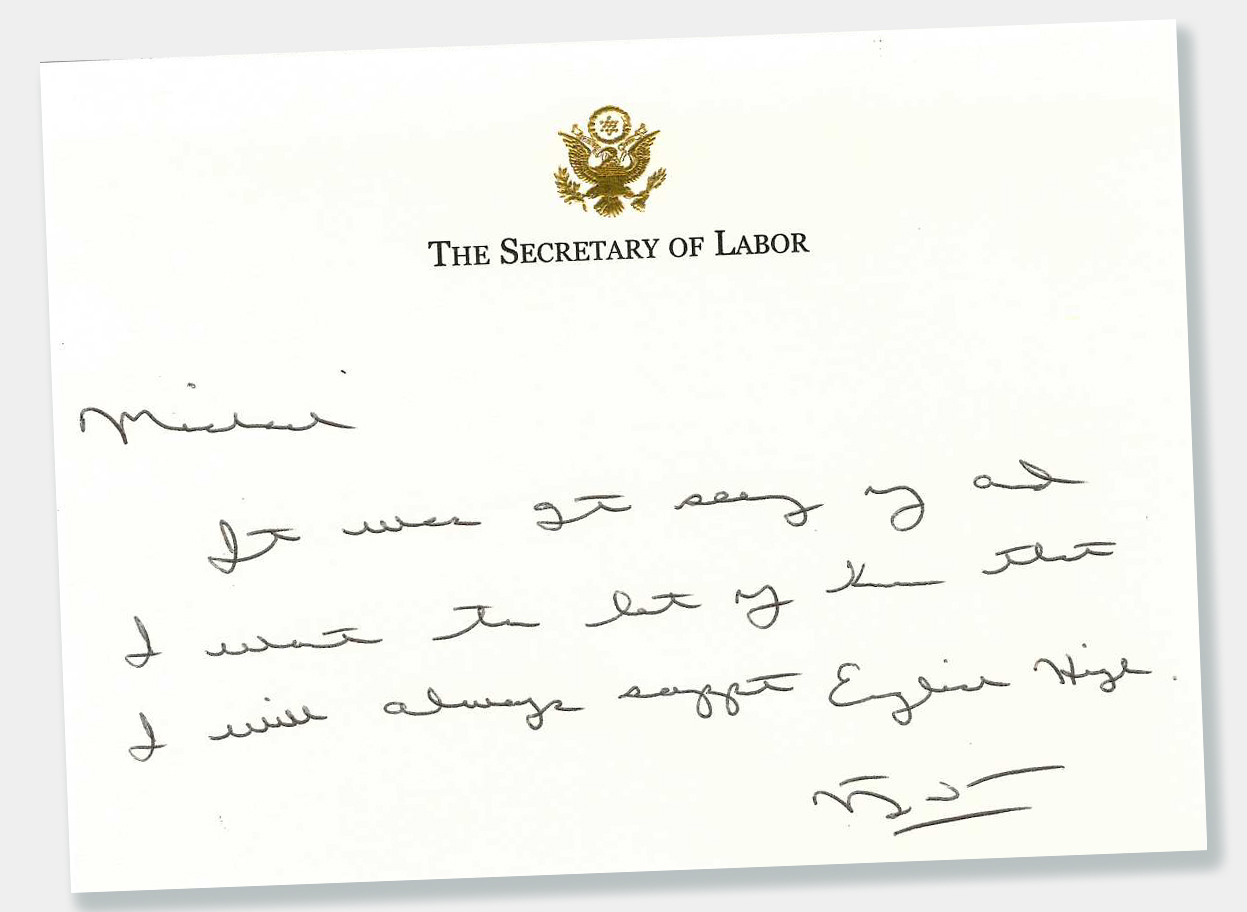 THE SECRETARY OF LABOR
Michael
It was gt seeing y and
I want to let y know that
I will always suppt English High.